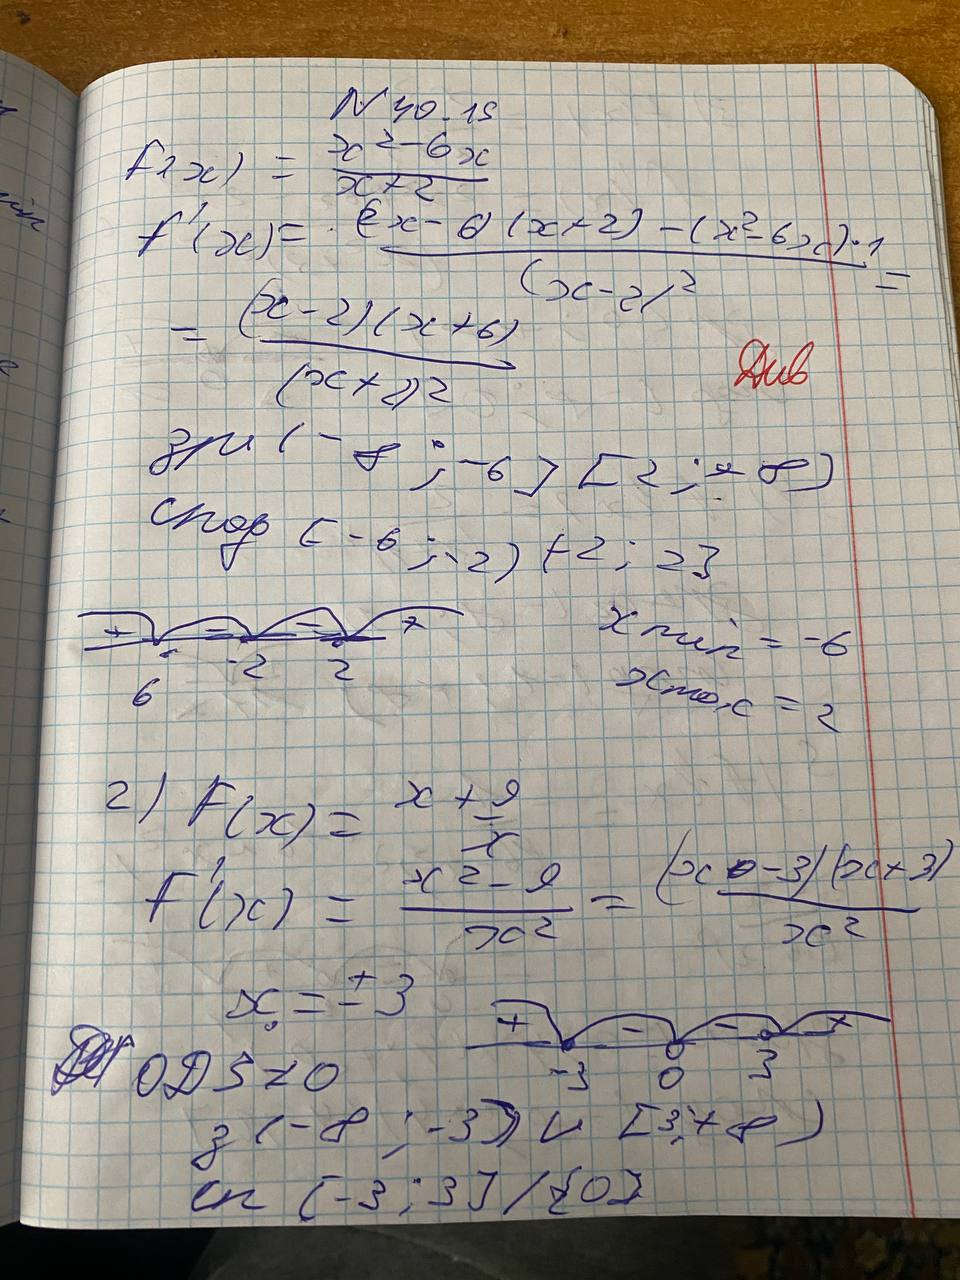 N 40.15
f(x) = (x² - 6x)/(x+2)
f'(x) = ((2x-6)(x+2) - (x²-6x)·1)/(x-2)² =
= (x-2)(x+6)/(x+2)²
Див
зрı (-∞; -6] [2; +∞)
спад [-6; -2) (-2; 2]
+ - - +
6 -2 2
x min = -6
x max = 2
2) F(x) = x + 9/x
F'(x) = (x² - 9)/x² = (x-3)(x+3)/x²
x = ±3
+ - - +
-3 0 3
з (-∞; -3] u [3; +∞)
сп [-3; 3] / {0}